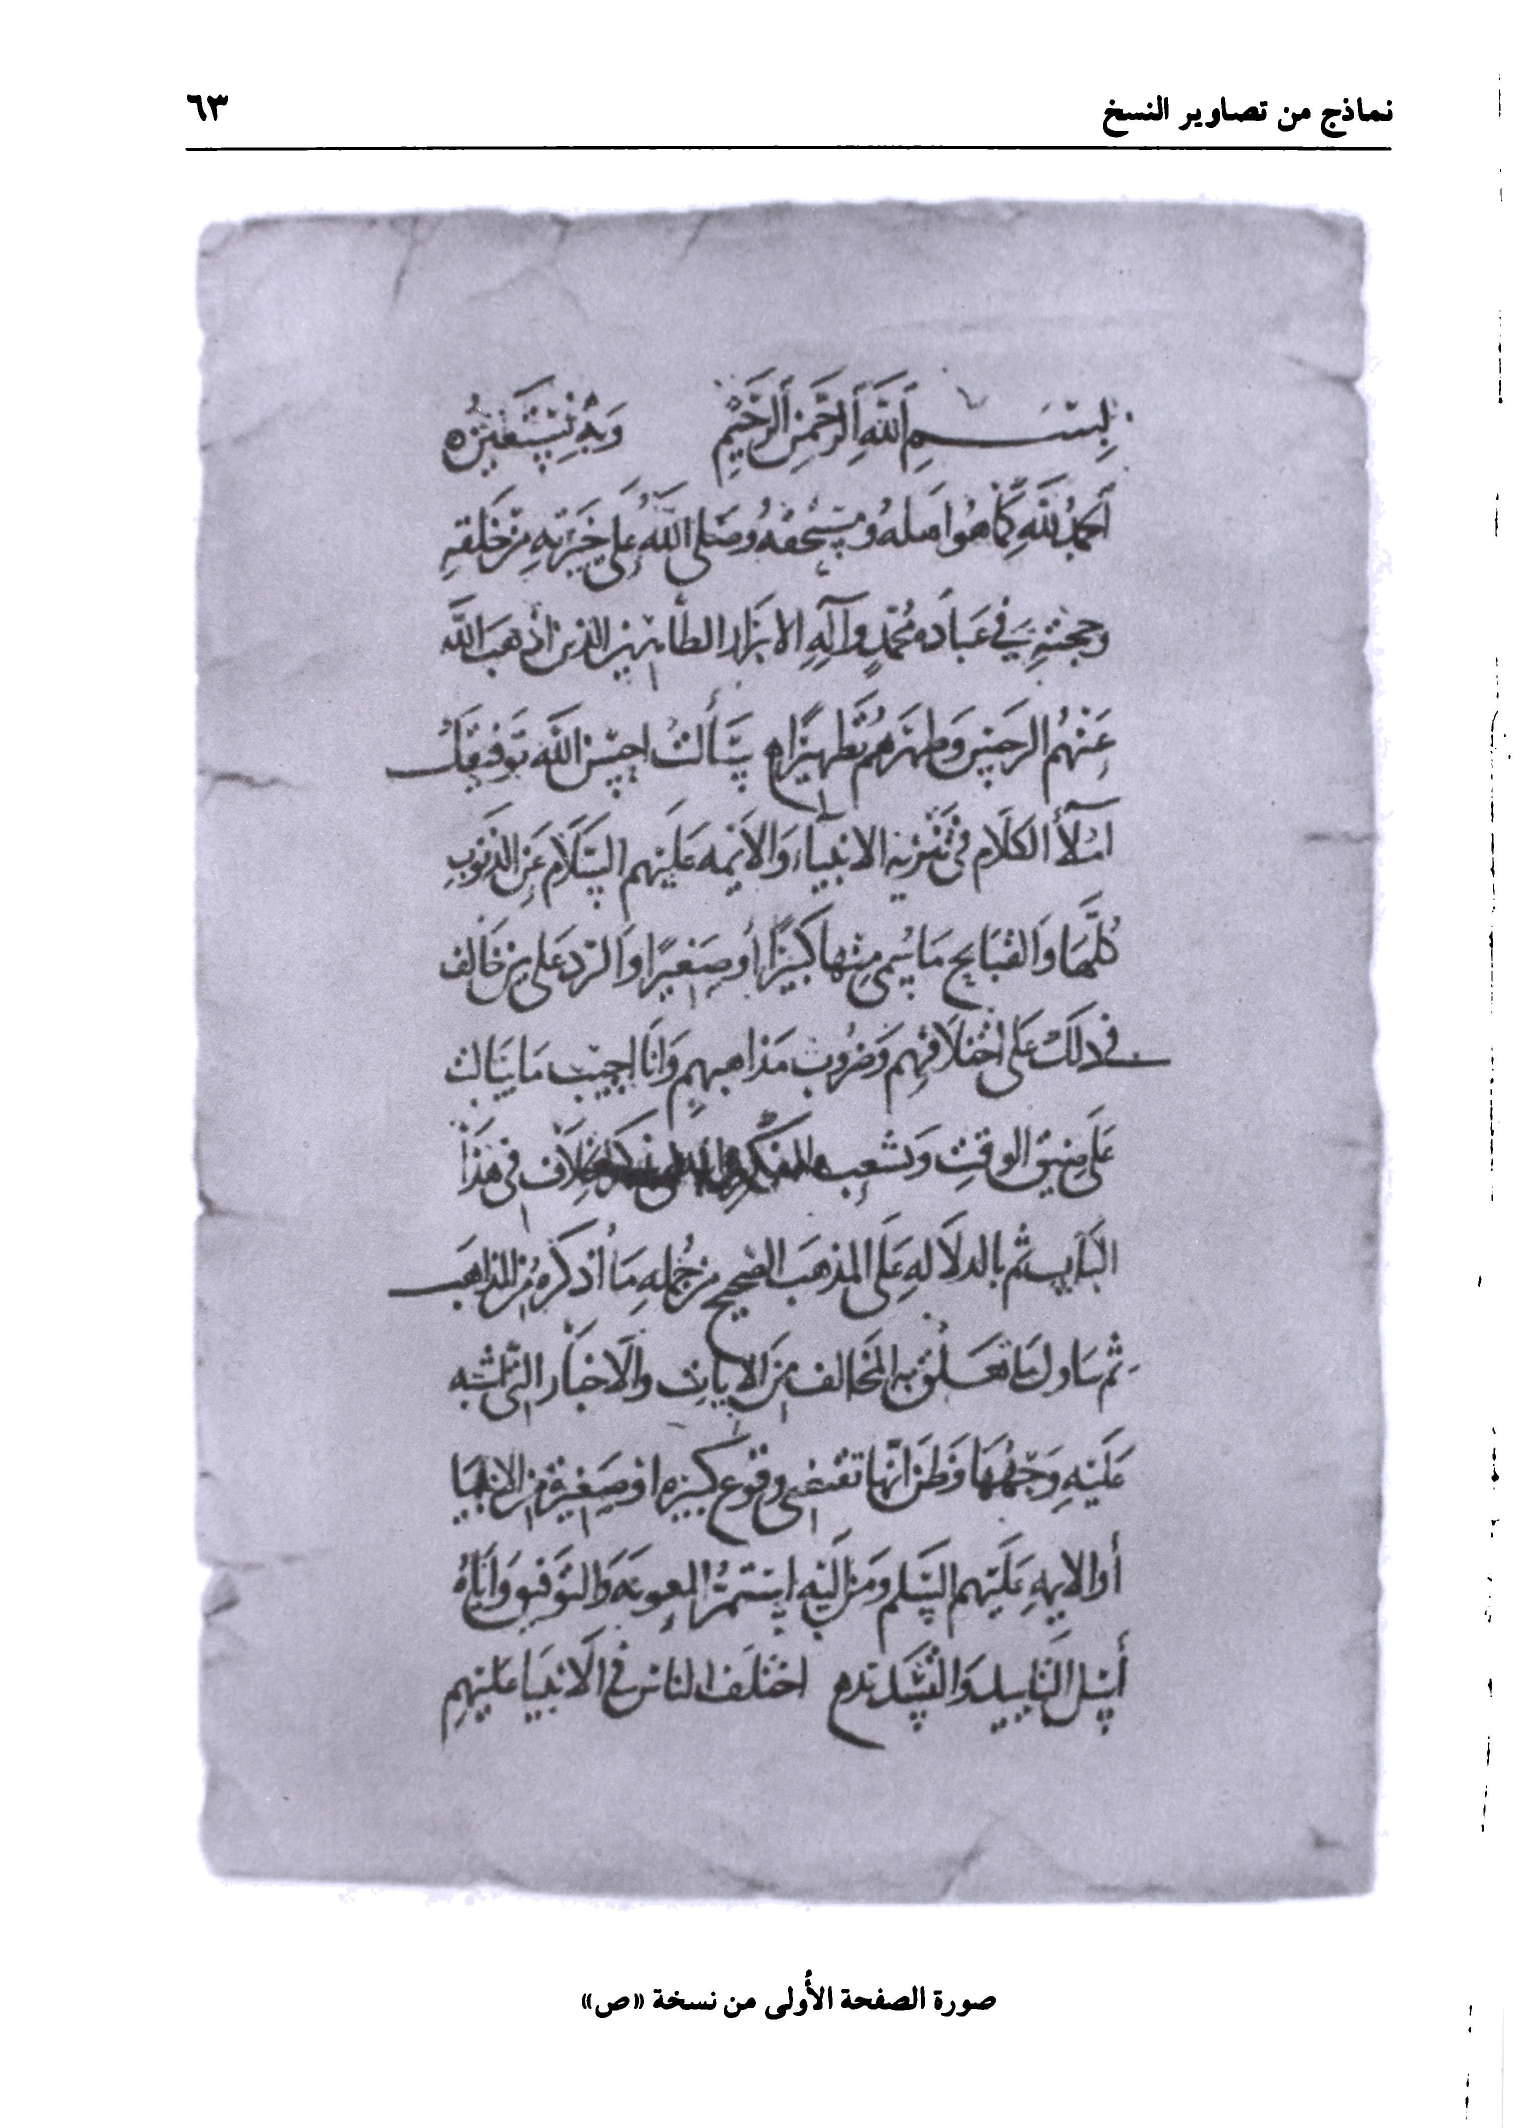 نماذج من تصاوير النسخ
٦٣
بِسْمِ اللَّهِ الرَّحْمَنِ الرَّحِيمِ وَبِهِ نَسْتَعِينُ
الحمدُ للَّهِ كَمَا هُوَ اهلهُ ومستحقهُ وصَلى اللَّهُ عَلى خِيَرَتِهِ مِن خَلقهِ
وحججهِ في عبَاده مُحَمّدٍ وآلهِ الابرَار الطاهرين الذين أذهَبَ اللَّه
عَنْهُم الرجسَ وَطهرَهُم تَطهيرًا سَألتَ احسَن اللَّه تَوفيقكَ
املَأ الكلَام في تَنزيه الانبيَاء وَالايمه عَلَيهم السَّلَام عَن الذنوبِ
كُلّهَا وَالقَبَايح مَا سُمي مِنها كَبيرًا أو صَغيرًا وَالرّد عَلى من خَالف
في ذلكَ عَلى اختلَافهِم وَضرُوب مَذاهبهِم وَأنَا اجيب مَا سَالت
عَلى ضيق الوقتِ وَتشعب الخلَاف في هَذَا
البَاب ثم بالدلَالهِ عَلَى المذهَب الصَّحيح من جُملهِ مَا أذكرهُ مِن المذاهبَ
ثم تاول مَا تَعَلق به المخَالف مِنَ الايَاتِ والَاخبَار التي اشتبه
عَلَيهِ وَجْهُهَا وَظن أنّهَا تقتضى وقوع كبيره او صَغيرة من الانبيَا
أو الايمهِ عَلَيهم السَّلم وَمن اللّهِ استمدُّ المعونَه وَالتوَفيق وَايَاهُ
أسَل التَّاييد وَالتسَّديد اختلَف النَاسُ في الَانبيَا عَلَيهِم
صورة الصفحة الأُولى من نسخة «ص»